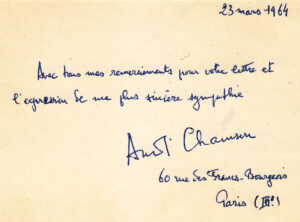 23 mars 1964
Avec tous mes remerciements pour votre lettre et
l'expression de ma plus sincère sympathie
André Chamson
60 rue des Francs-Bourgeois
Paris (IIIe)